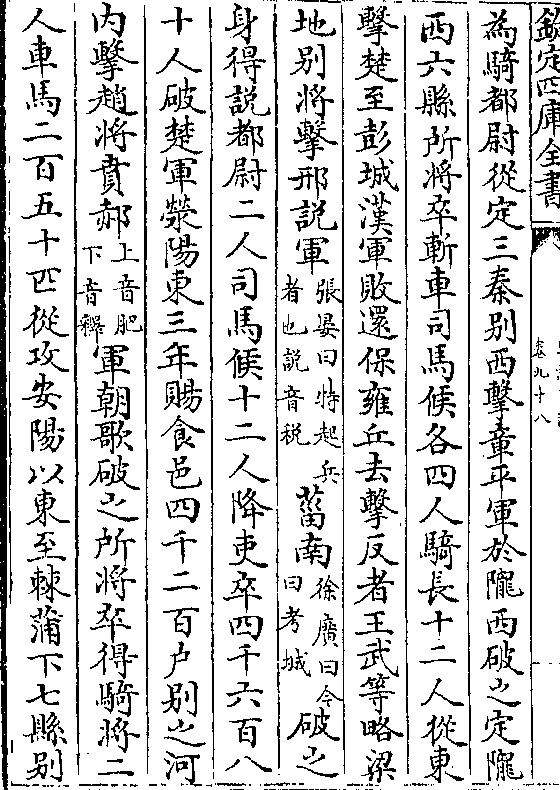 欽定四庫全書
卷九十八
為騎都尉從定三秦别西擊章平軍於隴西破之定隴
西六縣所將卒斬車司馬候各四人騎長十二人從東
擊楚至彭城漢軍敗還保雍丘去擊反者王武等略梁
地别將擊邢説軍張晏曰特起兵者也説音税菑南徐廣曰今曰考城破之
身得説都尉二人司馬候十二人降吏卒四千六百八
十人破楚軍滎陽東三年賜食邑四千二百户别之河
内擊趙將賁郝上音肥下音釋軍朝歌破之所將卒得騎將二
人車馬二百五十匹從攻安陽以東至棘蒲下七縣别